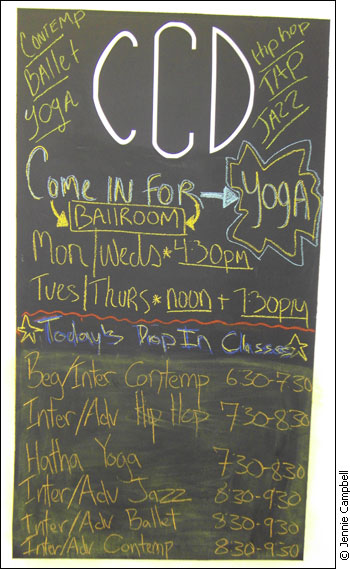 CONTEMP
BALLET
YOGA
CCD
HIP HOP
TAP
JAZZ
COME IN FOR
YOGA
BALLROOM
Mon/Weds * 430pm
Tues/Thurs * noon + 730pm
Today's Drop In Classes
Beg/Inter Contemp 630-730
Inter/Adv Hip Hop 730-830
Hatha Yoga 730-830
Inter/Adv Jazz 830-930
Inter/Adv Ballet 830-930
Inter/Adv Contemp 830-930
© Jennie Campbell